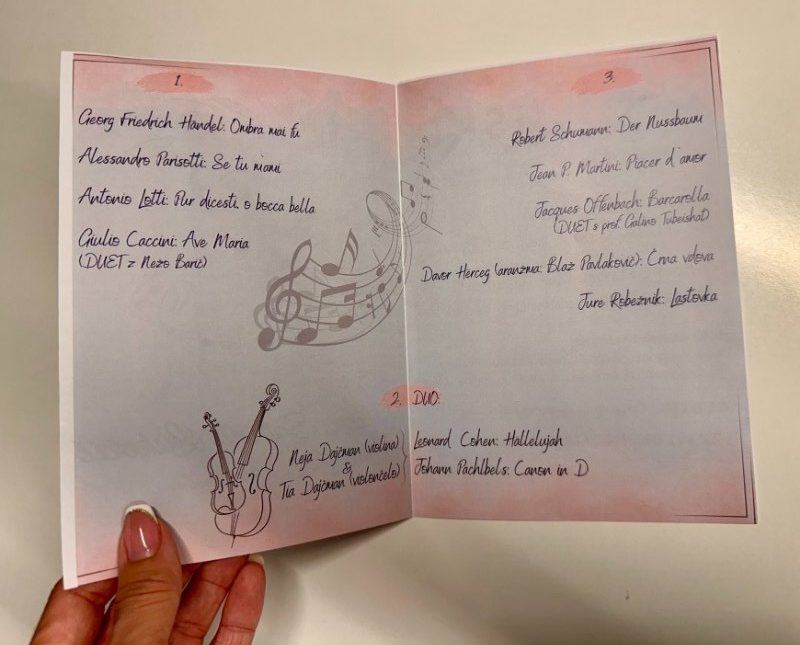 1.
Georg Friedrich Handel: Ombra mai fu
Alessandro Parisotti: Se tu m'ami
Antonio Lotti: Pur dicesti, o bocca bella
Giulio Caccini: Ave Maria
(DUET z Nežo Barič)
2. DUO:
Neja Dajčman (violina)
&
Tia Dajčman (violončelo)
Leonard Cohen: Hallelujah
Johann Pachlbels: Canon in D
3.
Robert Schumann: Der Nussbaum
Jean P. Martini: Piacer d'amor
Jacques Offenbach: Barcarolla
(DUET s prof. Galino Tubeishat)
Davor Herceg (aranžma: Blaž Pavlakovič): Črna vdova
Jure Robežnik: Lastovka